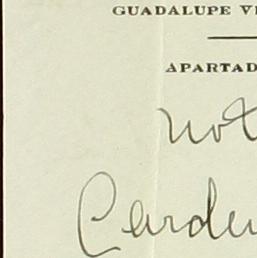 GUADALUPE VI
APARTAD
not
Carden